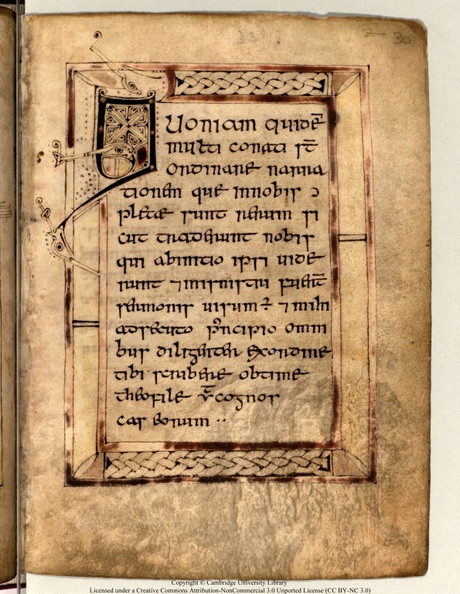 30
Quoniam quidē
multi conati st̄
ordinare narra
tionem que innobis ɔ
pletæ sunt rerum si
cut tradierunt nobis
qui abinitio ipsi uide
runt ⁊ ministri fuer̄t
sermonis uisum ÷ ⁊ mihi
adsecuto p̱rincipio omni
bus diligenter exordine
tibi scribere obtime
theofile ūt cognos
cas eorum ··
Copyright © Cambridge University Library
Licensed under a Creative Commons Attribution-NonCommercial 3.0 Unported License (CC BY-NC 3.0)